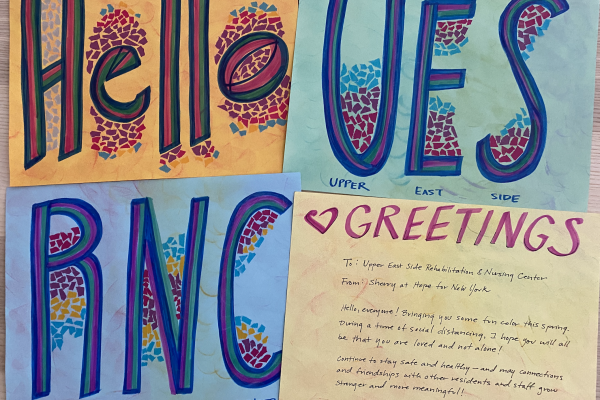 Hello
UES
UPPER EAST SIDE
RNC
GREETINGS
To: Upper East Side Rehabilitation & Nursing Center
From: Sherry at Hope for New York
Hello, everyone! Bringing you some fun color this spring.
During a time of social distancing, I hope you will all
be that you are loved and not alone!
Continue to stay safe and healthy — and may connections
and friendships with other residents and staff grow
stronger and more meaningful!